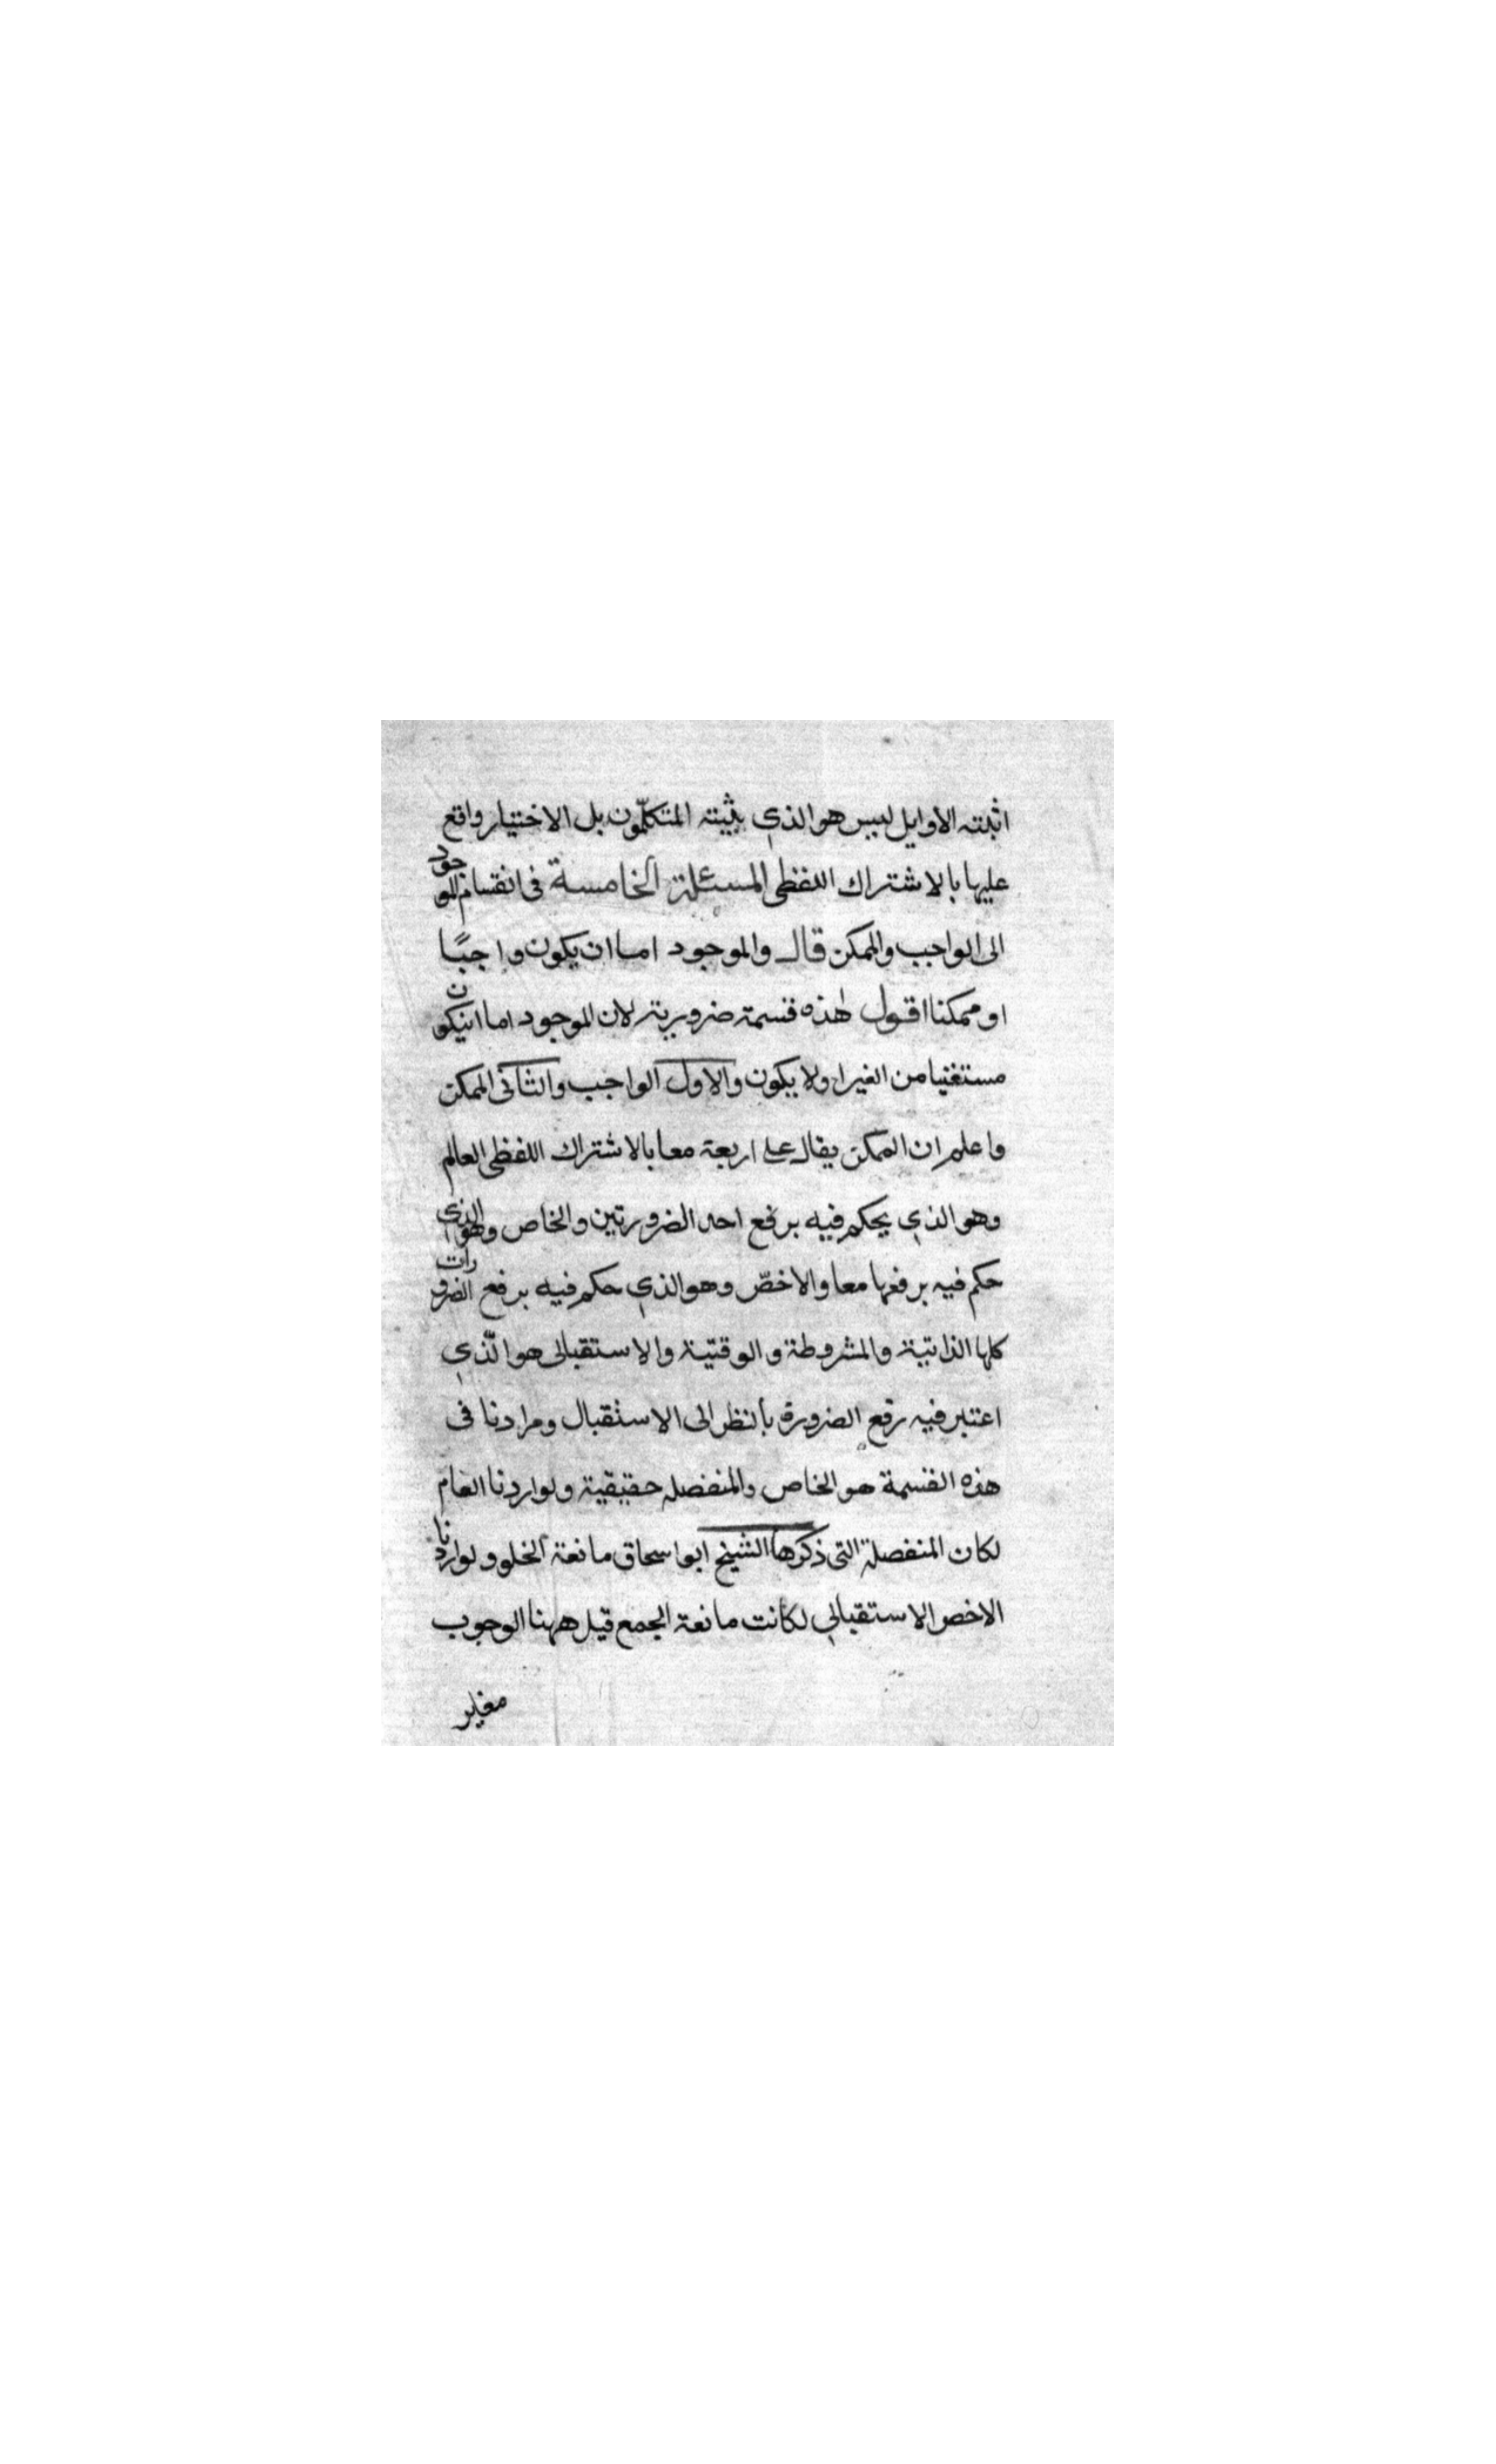 اثبته الاوايل ليس هو الذي يثبته المتكلّمون بل الاختيار واقع
عليها بالاشتراك اللفظى المسئلة الخامسة فى انقسام الموجود
الى الواجب والممكن قال والموجود اما ان يكون واجبًا
او ممكنا اقول هذه قسمة ضرورية لان الموجود اما انيكون
مستغنيا من الغير او لا يكون والاول الواجب والثانى الممكن
واعلم ان الممكن يقال على اربعة معا بالاشتراك اللفظى العام
وهو الذي يحكم فيه برفع احد الضرورتين والخاص وهو الذي
حكم فيه برفعها معا والاخصّ وهو الذي حكم فيه برفع الضرورات
كلها الذاتية والمشروطة والوقتية والاستقبالى هو الّذي
اعتبر فيه رفع الضرورة بالنظر الى الاستقبال ومرادنا فى
هذه القسمة هو الخاص والمنفصله حقيقية ولو اردنا العام
لكان المنفصلة التى ذكرها الشيخ ابو اسحاق مانعة الخلو ولو اردنا
الاخص الاستقبالي لكانت مانعة الجمع قيل ههنا الوجوب
مغاير